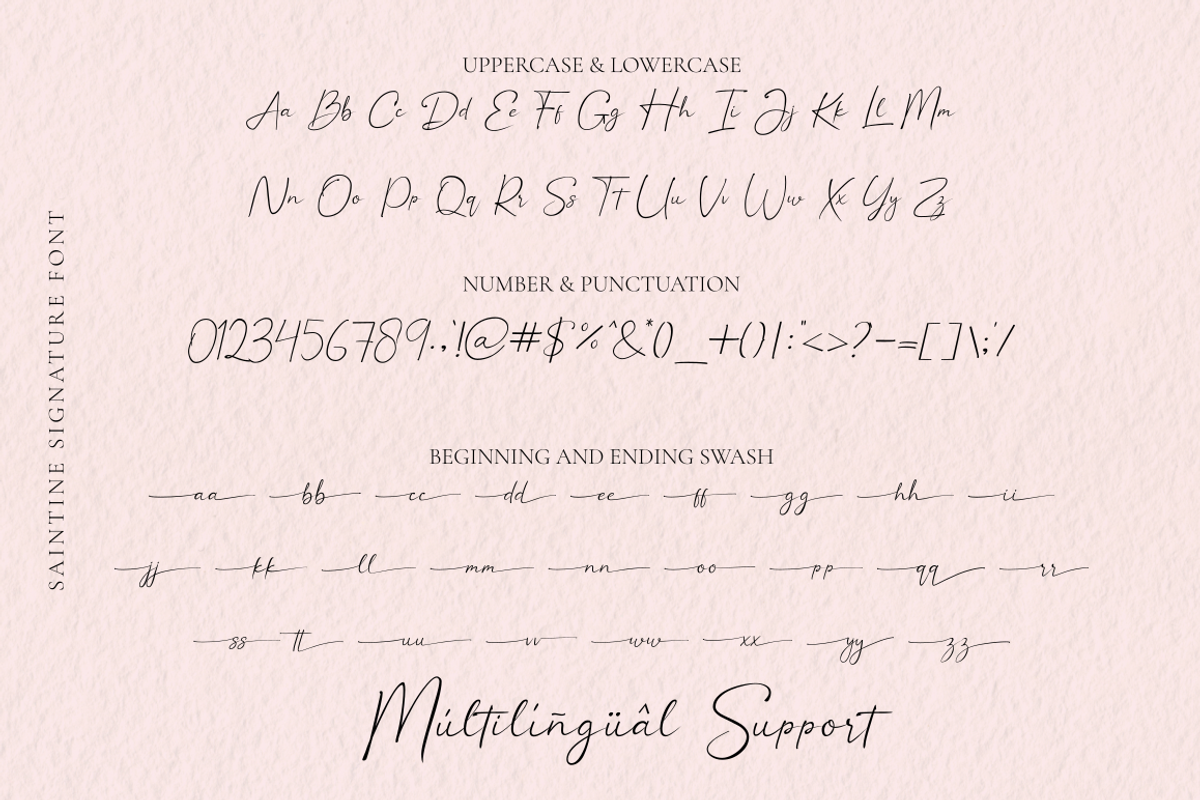 UPPERCASE & LOWERCASE
Aa Bb Cc Dd Ee Ff Gg Hh Ii Jj Kk Ll Mm
Nn Oo Pp Qq Rr Ss Tt Uu Vv Ww Xx Yy Zz
SAINTINE SIGNATURE FONT
NUMBER & PUNCTUATION
0123456789.,`!@#$%^&*()_+()|:"<>?-=[]\;'/
BEGINNING AND ENDING SWASH
aa bb cc dd ee ff gg hh ii
jj kk ll mm nn oo pp qq rr
ss tt uu vv ww xx yy zz
Múltilíñgüâl Support